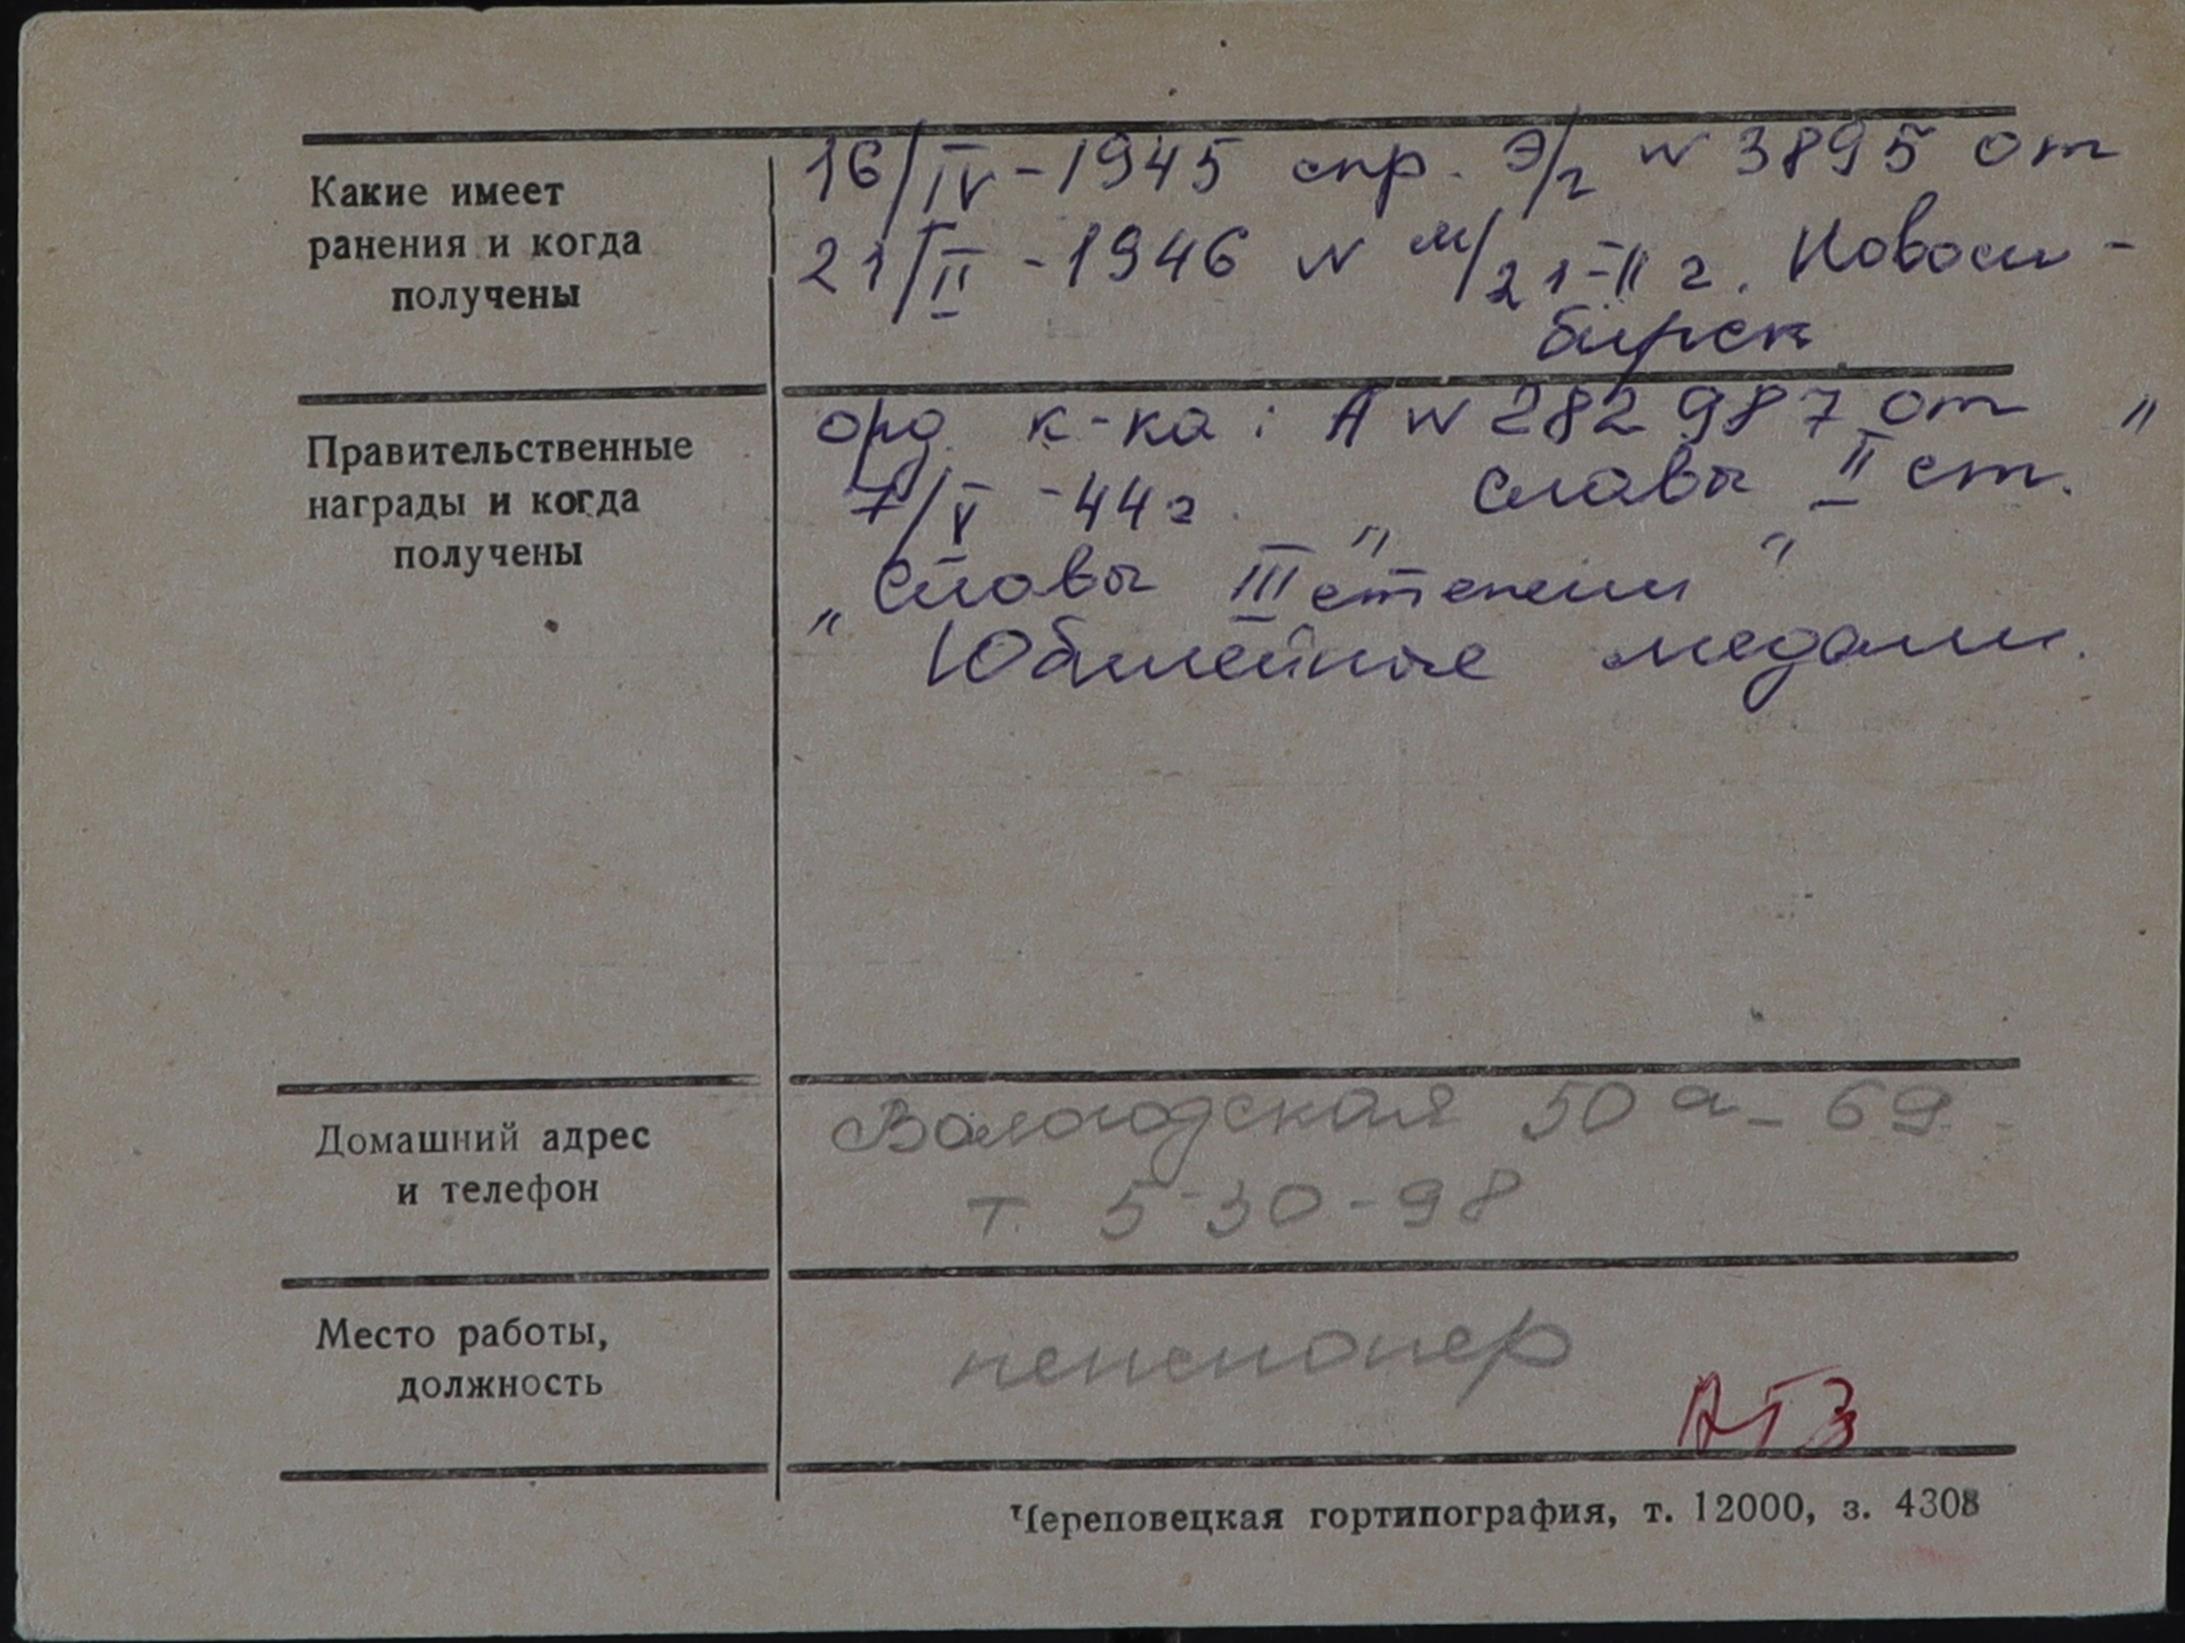 Какие имеет
ранения и когда
получены
16/IV-1945 спр. Э/г N 3895 от
21/II-1946 N м/21-II г. Новоси-
бирск
Правительственные
награды и когда
получены
орд. к-ка: А N 282987 от "
7/V-44г. „ Славы II ст.
„ Славы III степени "
Юбилейные медали.
Домашний адрес
и телефон
Вологодская 50а-69
т. 5-30-98
Место работы,
должность
пенсионер
Череповецкая гортипография, т. 12000, з. 4308